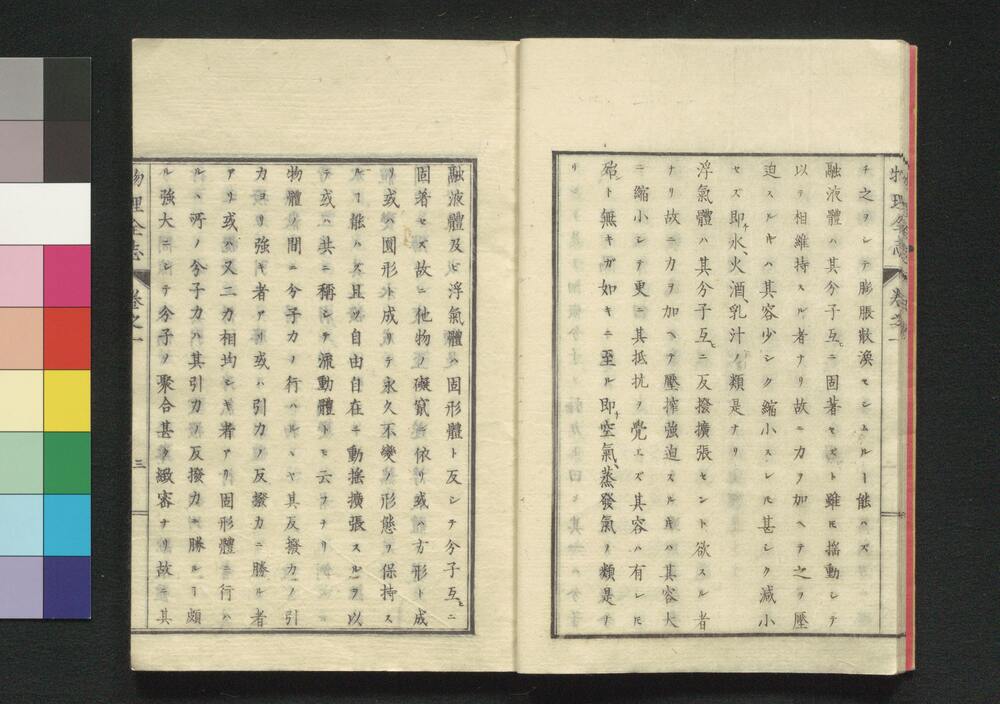 チ之ヲシテ膨脹散渙セシムルヿ能ハズ
融液體ハ其分子互ニ固著セズト雖𪜈揺動シテ
以テ相維持スル者ナリ故ニ力ヲ加ヘテ之ヲ壓
迫スルキハ其容少シク縮小スレ𪜈甚シク減小
セズ即チ水、火酒、乳汁ノ類是ナリ
浮氣體ハ其分子互ニ反撥擴張セント欲スル者
ナリ故ニ力ヲ加ヘテ壓搾強迫スルキハ其容大
ニ縮小シテ更ニ其抵抗ヲ覺エズ其容ハ有レ𪜈
殆ト無キガ如キニ至ル即チ空氣、蒸發氣ノ類是ナ
リ
物理全志 卷之一
融液體及ビ浮氣體ハ固形體ト反シテ分子互ニ
固著セズ故ニ他物ノ礙窒ニ依リ或ハ方形ト成
リ或ハ圓形ト成リテ永久不變ノ形態ヲ保持ス
ルヿ能ハズ且ツ自由自在ニ動揺擴張スルヲ以
テ或ハ共ニ稱シテ流動體トモ云フナリ
物體ノ間ニ分子力ノ行ハルヽヤ其反撥力ノ引
力ヨリ強キ者アリ或ハ引力ノ反撥力ニ勝ル者
アリ或ハ又二力相均シキ者アリ固形體ニ行ハ
ルヽ所ノ分子力ハ其引力ノ反撥力ニ勝ルヿ頗
ル強大ニシテ分子ノ聚合甚タ緻密ナリ故ニ其
物理全志 卷之一 三